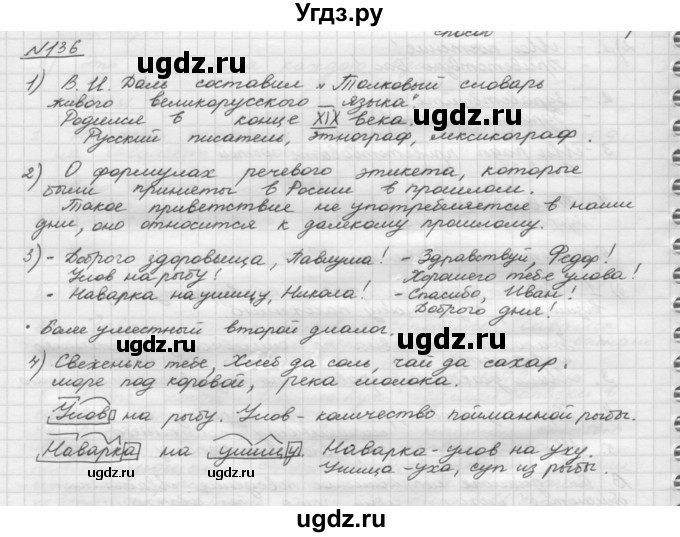 Угдз.ру
способ
№136
1) В. И. Даль составил „Толковый словарь
живого великорусского языка".
Родился в конце XIX века.
Русский писатель, этнограф, лексикограф.
2) О формулах речевого этикета, которые
были приняты в России в прошлом.
Такое приветствие не употребляется в наши
дни, оно относится к далекому прошлому.
3) - Доброго здоровьица, Павлуша! - Здравствуй, Федор!
Улов на рыбу! Хорошего тебе улова!
- Наварка на ушицу, Никола! - Спасибо, Иван!
Доброго дня!
• Более уместный второй диалог.
4) Свеженько тебе, Хлеб да соль, чай да сахар.
море под коровой, река молока.
Улов на рыбу. Улов - количество пойманной рыбы.
Наварка на ушицу. Наварка - улов на уху.
Ушица - уха, суп из рыбы.
ugdz.ru
ugdz.ru
ugdz.ru
ugdz.ru
ugdz.ru
ugdz.ru
ugdz.ru
ugdz.ru
ugdz.ru
ugdz.ru
Угдз.ру